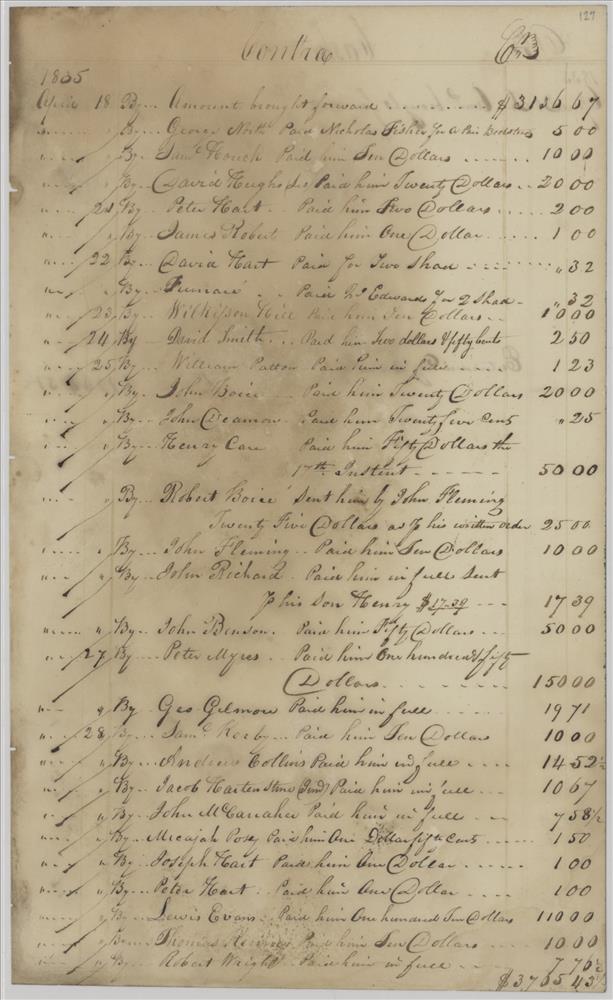 127
Contra Cr
1835
April 18 By Amount brought forward $3136 67
" " By George North Paid Nicholas Fisher for a Pair 5 00
" " By Saml Houch Paid him Ten Dollars 10 00
" " By David Hughs Paid him Twenty Dollars 20 00
" 21 By Peter Hart Paid him Two Dollars 2 00
" " By James Robert Paid him One Dollar 1 00
" 22 By David Hart Paid for Two Shad " 32
" " By Furnace Paid Edwards for 2 Shad " 32
" 23 By Wilkison Hice Paid him Ten Dollars 10 00
" 24 By David Smith Paid him Two dollars & fifty Cents 2 50
" 25 By William Patton Paid him in full 1 23
" " By John Boice Paid him Twenty Dollars 20 00
" " By John Deamon Paid him Twenty five Cents " 25
" " By Henry Care Paid him Fifty Dollars the
17th Instent 50 00
" " By Robert Boice Sent him by John Fleming
Twenty Five Dollars as his written order 25 00
" " By John Fleming Paid him Ten Dollars 10 00
" " By John Richard Paid him in full Sent
his Son Henry $17.39 17 39
" " By John Benson Paid him Fifty Dollars 50 00
" 27 By Peter Myres Paid him One hundred & fifty
Dollars 150 00
" " By Geo Gilmore Paid him in full 19 71
" 28 By Saml Kerby Paid him Ten Dollars 10 00
" " By Andrew Collins Paid him in full 14 52½
" " By Jacob Harten Stine Paid him in full 10 67
" " By John McCanaher Paid him in full 7 58½
" " By Micajah Posey Paid him One Dollar fifty Cents 1 50
" " By Joseph Hart Paid him One Dollar 1 00
" " By Peter Hart Paid him One Dollar 1 00
" " By Lewis Evans Paid him One hundred Ten Dollars 110 00
" " By Thomas Paid him Ten Dollars 10 00
" " By Robert Wright Paid him in full 7 76½
$3,705 43½